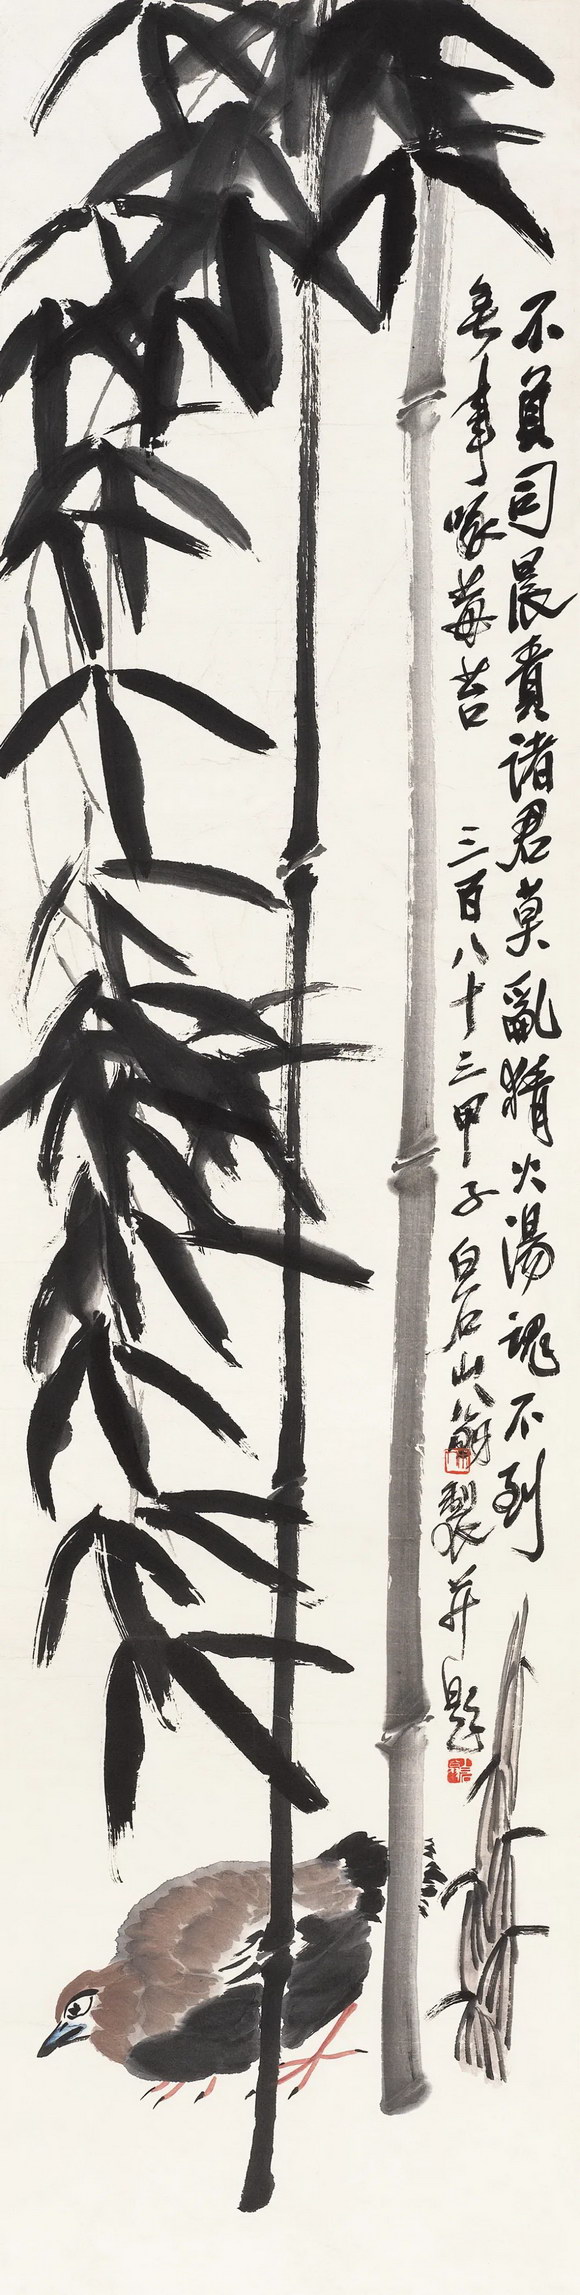 不負司晨責諸君莫亂猜火湯魂不到
無事啄莓苔 三百八十三甲子白石山翁製并題